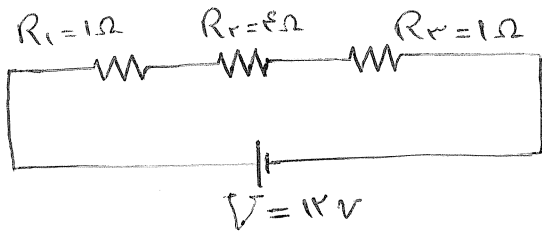 R₁=۱Ω R₂=۴Ω R₃=۱Ω
V=۱۲v